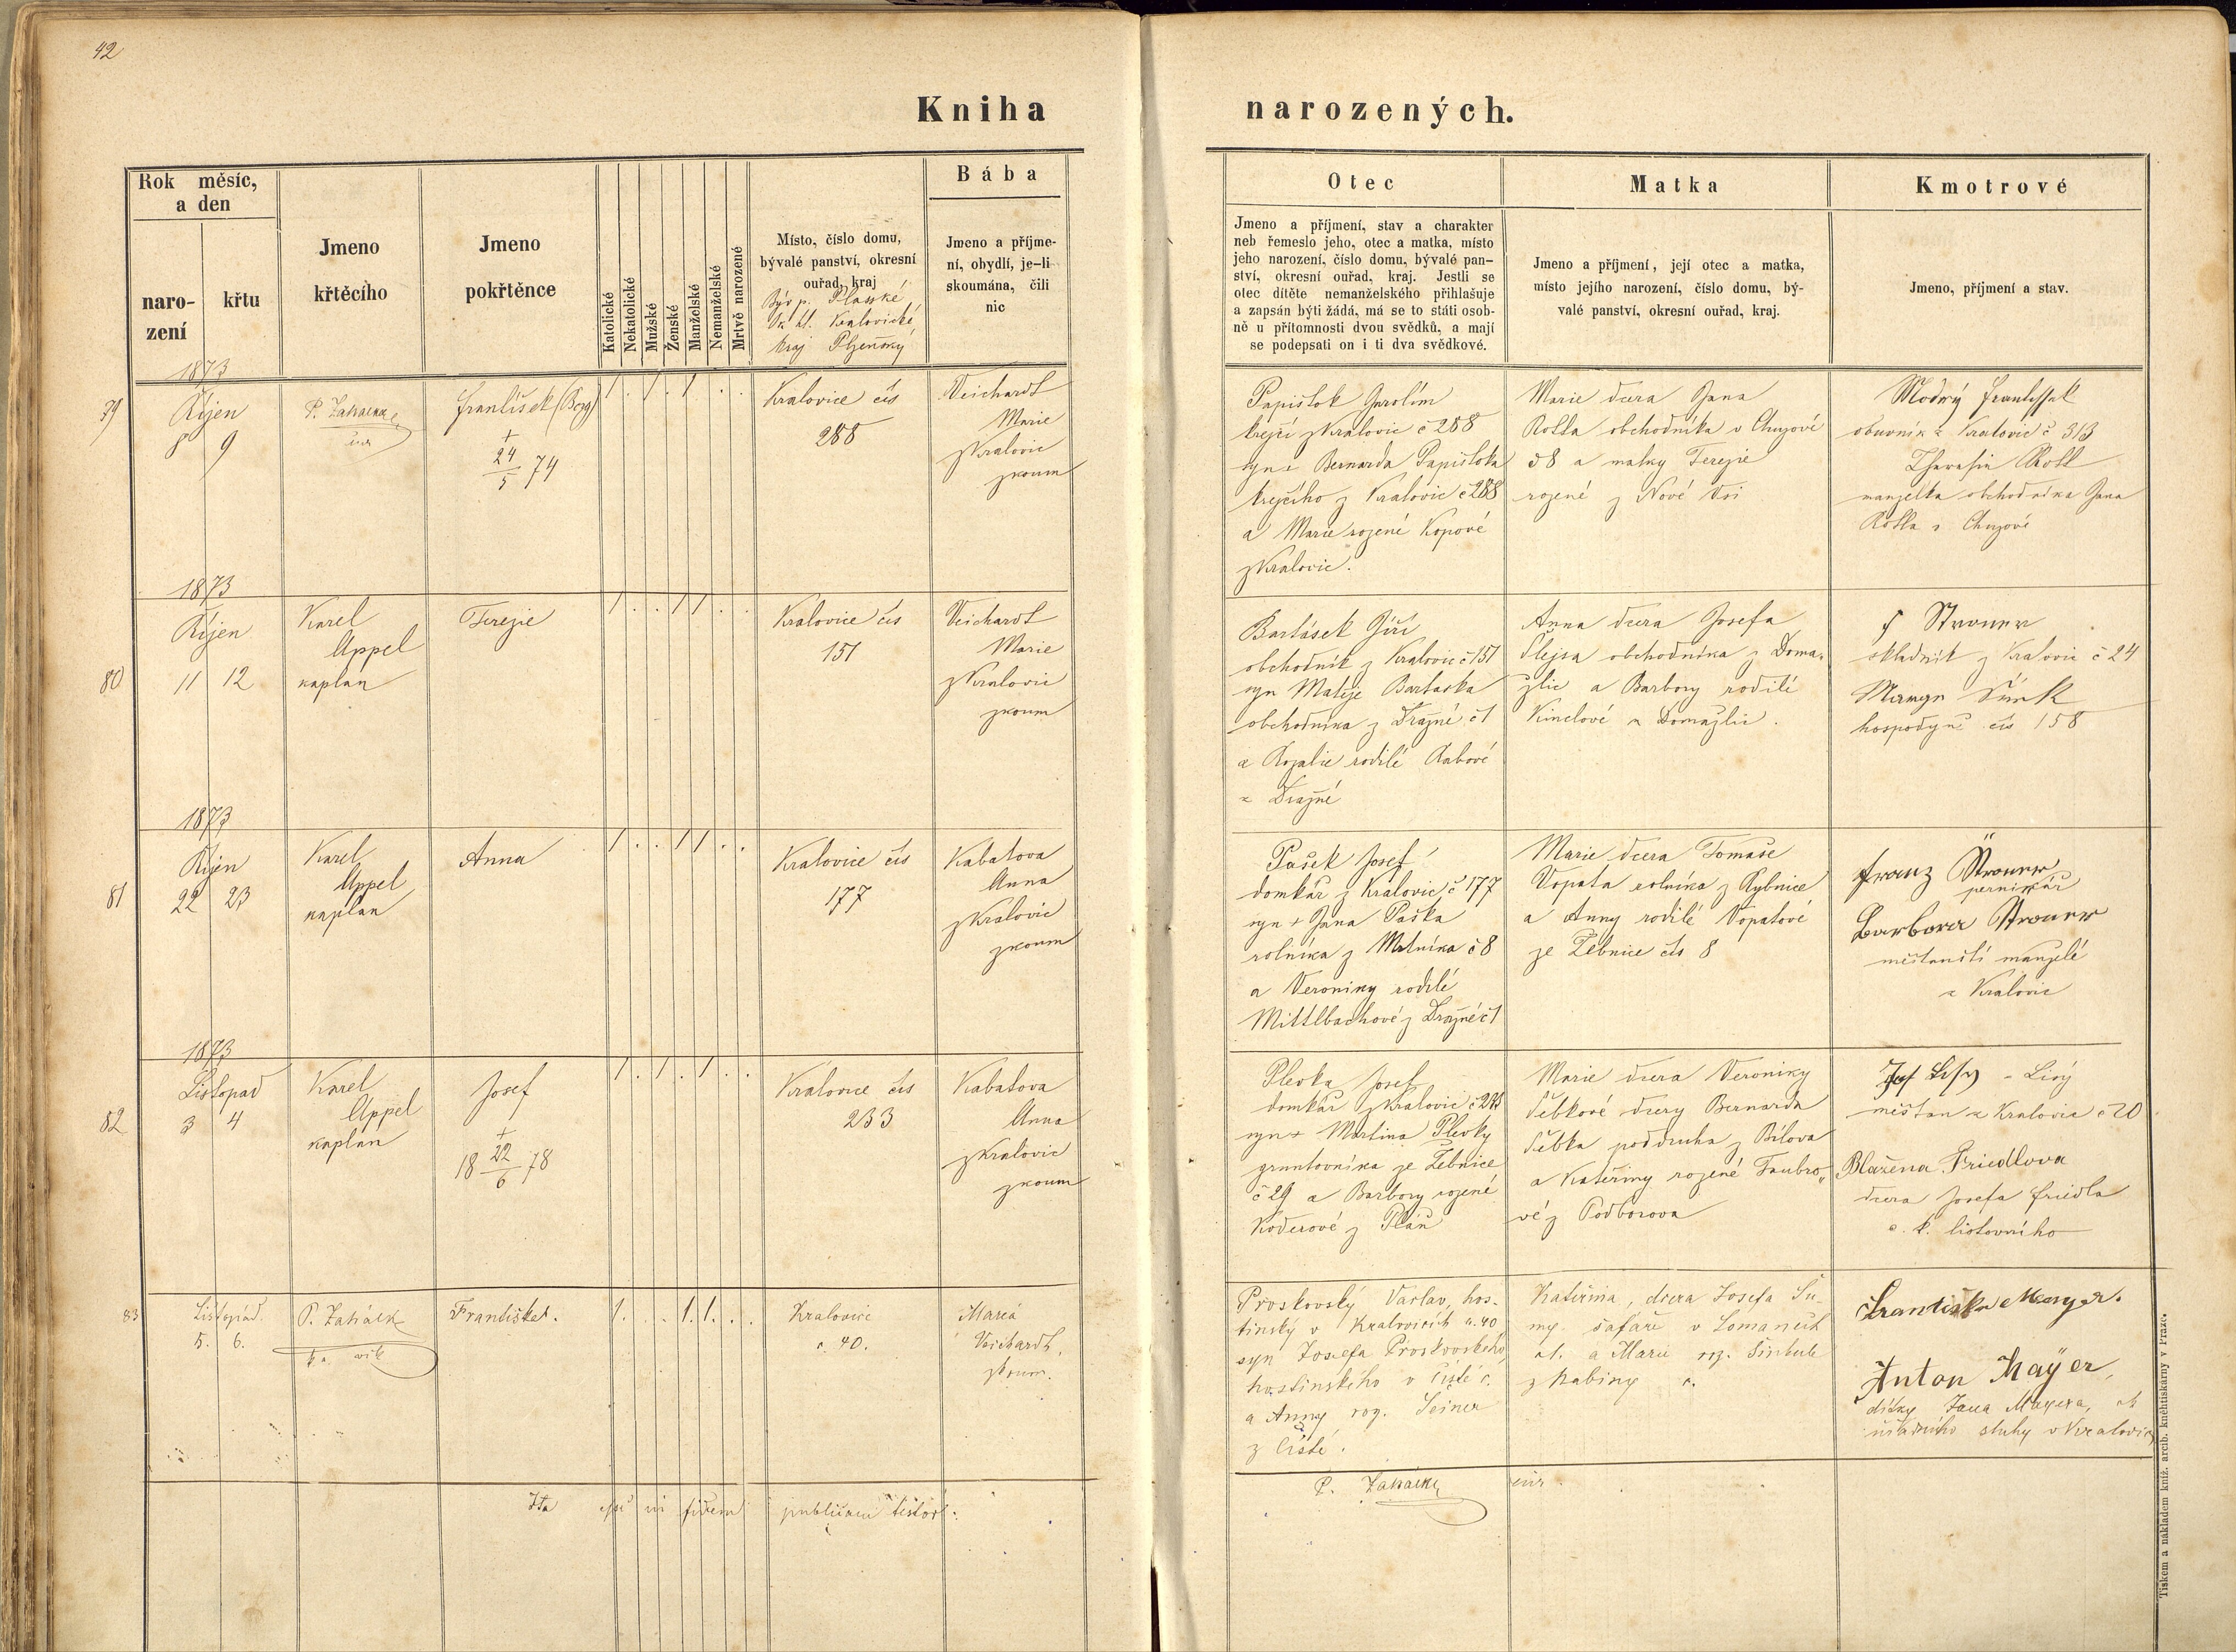 42
Kniha narozených.
Rok měsíc, a den
narození
křtu
Jmeno křtěcího
Jmeno pokřtěnce
Katolické
Nekatolické
Mužské
Ženské
Manželské
Nemanželské
Mrtvě narozené
Místo, číslo domu,
bývalé panství, okresní
ouřad, kraj
Býv p. Plasské
Ok. hl. Kralovické
kraj Plzeňský
Bába
Jmeno a příjme-
ní, obydlí, je-li
skoumána, čili
nic
Otec
Jmeno a příjmení, stav a charakter
neb řemeslo jeho, otec a matka, místo
jeho narození, číslo domu, bývalé pan-
ství, okresní ouřad, kraj. Jestli se
otec dítěte nemanželského přihlašuje
a zapsán býti žádá, má se to státi osob-
ně u přítomnosti dvou svědků, a mají
se podepsati on i ti dva svědkové.
Matka
Jmeno a příjmení, její otec a matka,
místo jejího narození, číslo domu, bý-
valé panství, okresní ouřad, kraj.
Kmotrové
Jmeno, příjmení a stav.
1873
79
Říjen
8 9
František
+
24/5 74
1 . 1 . 1 . .
Kralovice čís
288
Veichardt
Marie
z Kralovic
zkoum
Papištok Jarolím
krejčí z Kralovic č 288
syn + Bernarda Papištoka
krejčího z Kralovic č 288
a Marie rozené Kopové
z Kralovic.
Marie dcera Jana
obchodníka v
č 8 a matky Terezie
rozené z Nové Vsi
Modrý
obuvník z Kralovic č 313
manželka obchodníka Jana
1873
80
Říjen
11 12
Karel
Appel
kaplan
Terezie
1 . . 1 1 . .
Kralovice čís
151
Veichardt
Marie
z Kralovic
zkoum
Bartásek Jiří
obchodník z Kralovic č 151
syn Matěje Bartáska
obchodníka z Dražně č 1
a Rozalie rodilé Rabové
z Dražně
Anna dcera Josefa
obchodníka z Doma-
žlic a Barbory rodilé
Kinclové z Domažlic.
skladník z Kralovic č 24
hospodyně čís 158
1873
81
Říjen
22 23
Karel
Appel
kaplan
Anna
1 . . 1 1 . .
Kralovice čís
177
Kabatova
Anna
z Kralovic
zkoum
Pašek Josef
domkář z Kralovic č 177
syn + Jana Paška
rolníka z č 8
a Veroniky rodilé
Mittlbachové z Dražně č 1
Marie dcera Tomáše
Vopata rolníka z Rybnice
a Anny rodilé Vopatové
ze Žebnice čís 8
Franz
pernikář
Barbora
měšťanští manželé
z Kralovic
1873
82
Listopad
3 4
Karel
Appel
kaplan
Josef
+
18 22/6 78
1 . 1 . 1 . .
Kralovice čís
233
Kabatova
Anna
z Kralovic
zkoum
Plevka Josef
domkář z Kralovic
syn + Martina Plevky
gruntovníka ze Žebnice
č 29 a Barbory rozené
Koderové z Pláň
Marie dcera Veroniky
dcery Bernarda
podruha z Bílova
a Kateřiny rozené Taubro„
vé z Podborova
- Lisý
měšťan z Kralovic č 20
Blažena Friedlova
dcera Josefa Friedla
c. k. listovního
83
Listopad.
5. 6.
Františka.
1. . . 1. 1. . .
Kralovice
č. 40.
Maria
Veichardt,
zkoum.
Proskovský Václav, hos-
tinský v Kralovicích č. 40
syn Josefa Proskovského,
hostinského v Čisté č.
a Anny roz.
z Čisté.
Kateřina, dcera Josefa
šafáře v Lomanech
a Marie roz.
z
Františka Mayer.
Anton Mayer,
dítky Jana Mayera,
sluhy v Kralovicích
Ita in fidem publicam testor.
Tiskem a nákladem kníž. arcib. knehtiskárny v Praze.